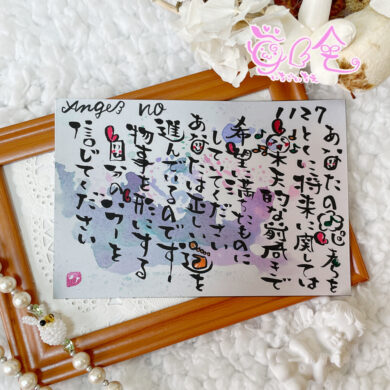 Angel no
1127
あなたの思考を
とくに将来に関しては
楽天的な気持ちで
希望に満ちたものに
してください
あなたは正しい道を
進んでいるのです!
物事を形にする
自分のパワーを
信じてください